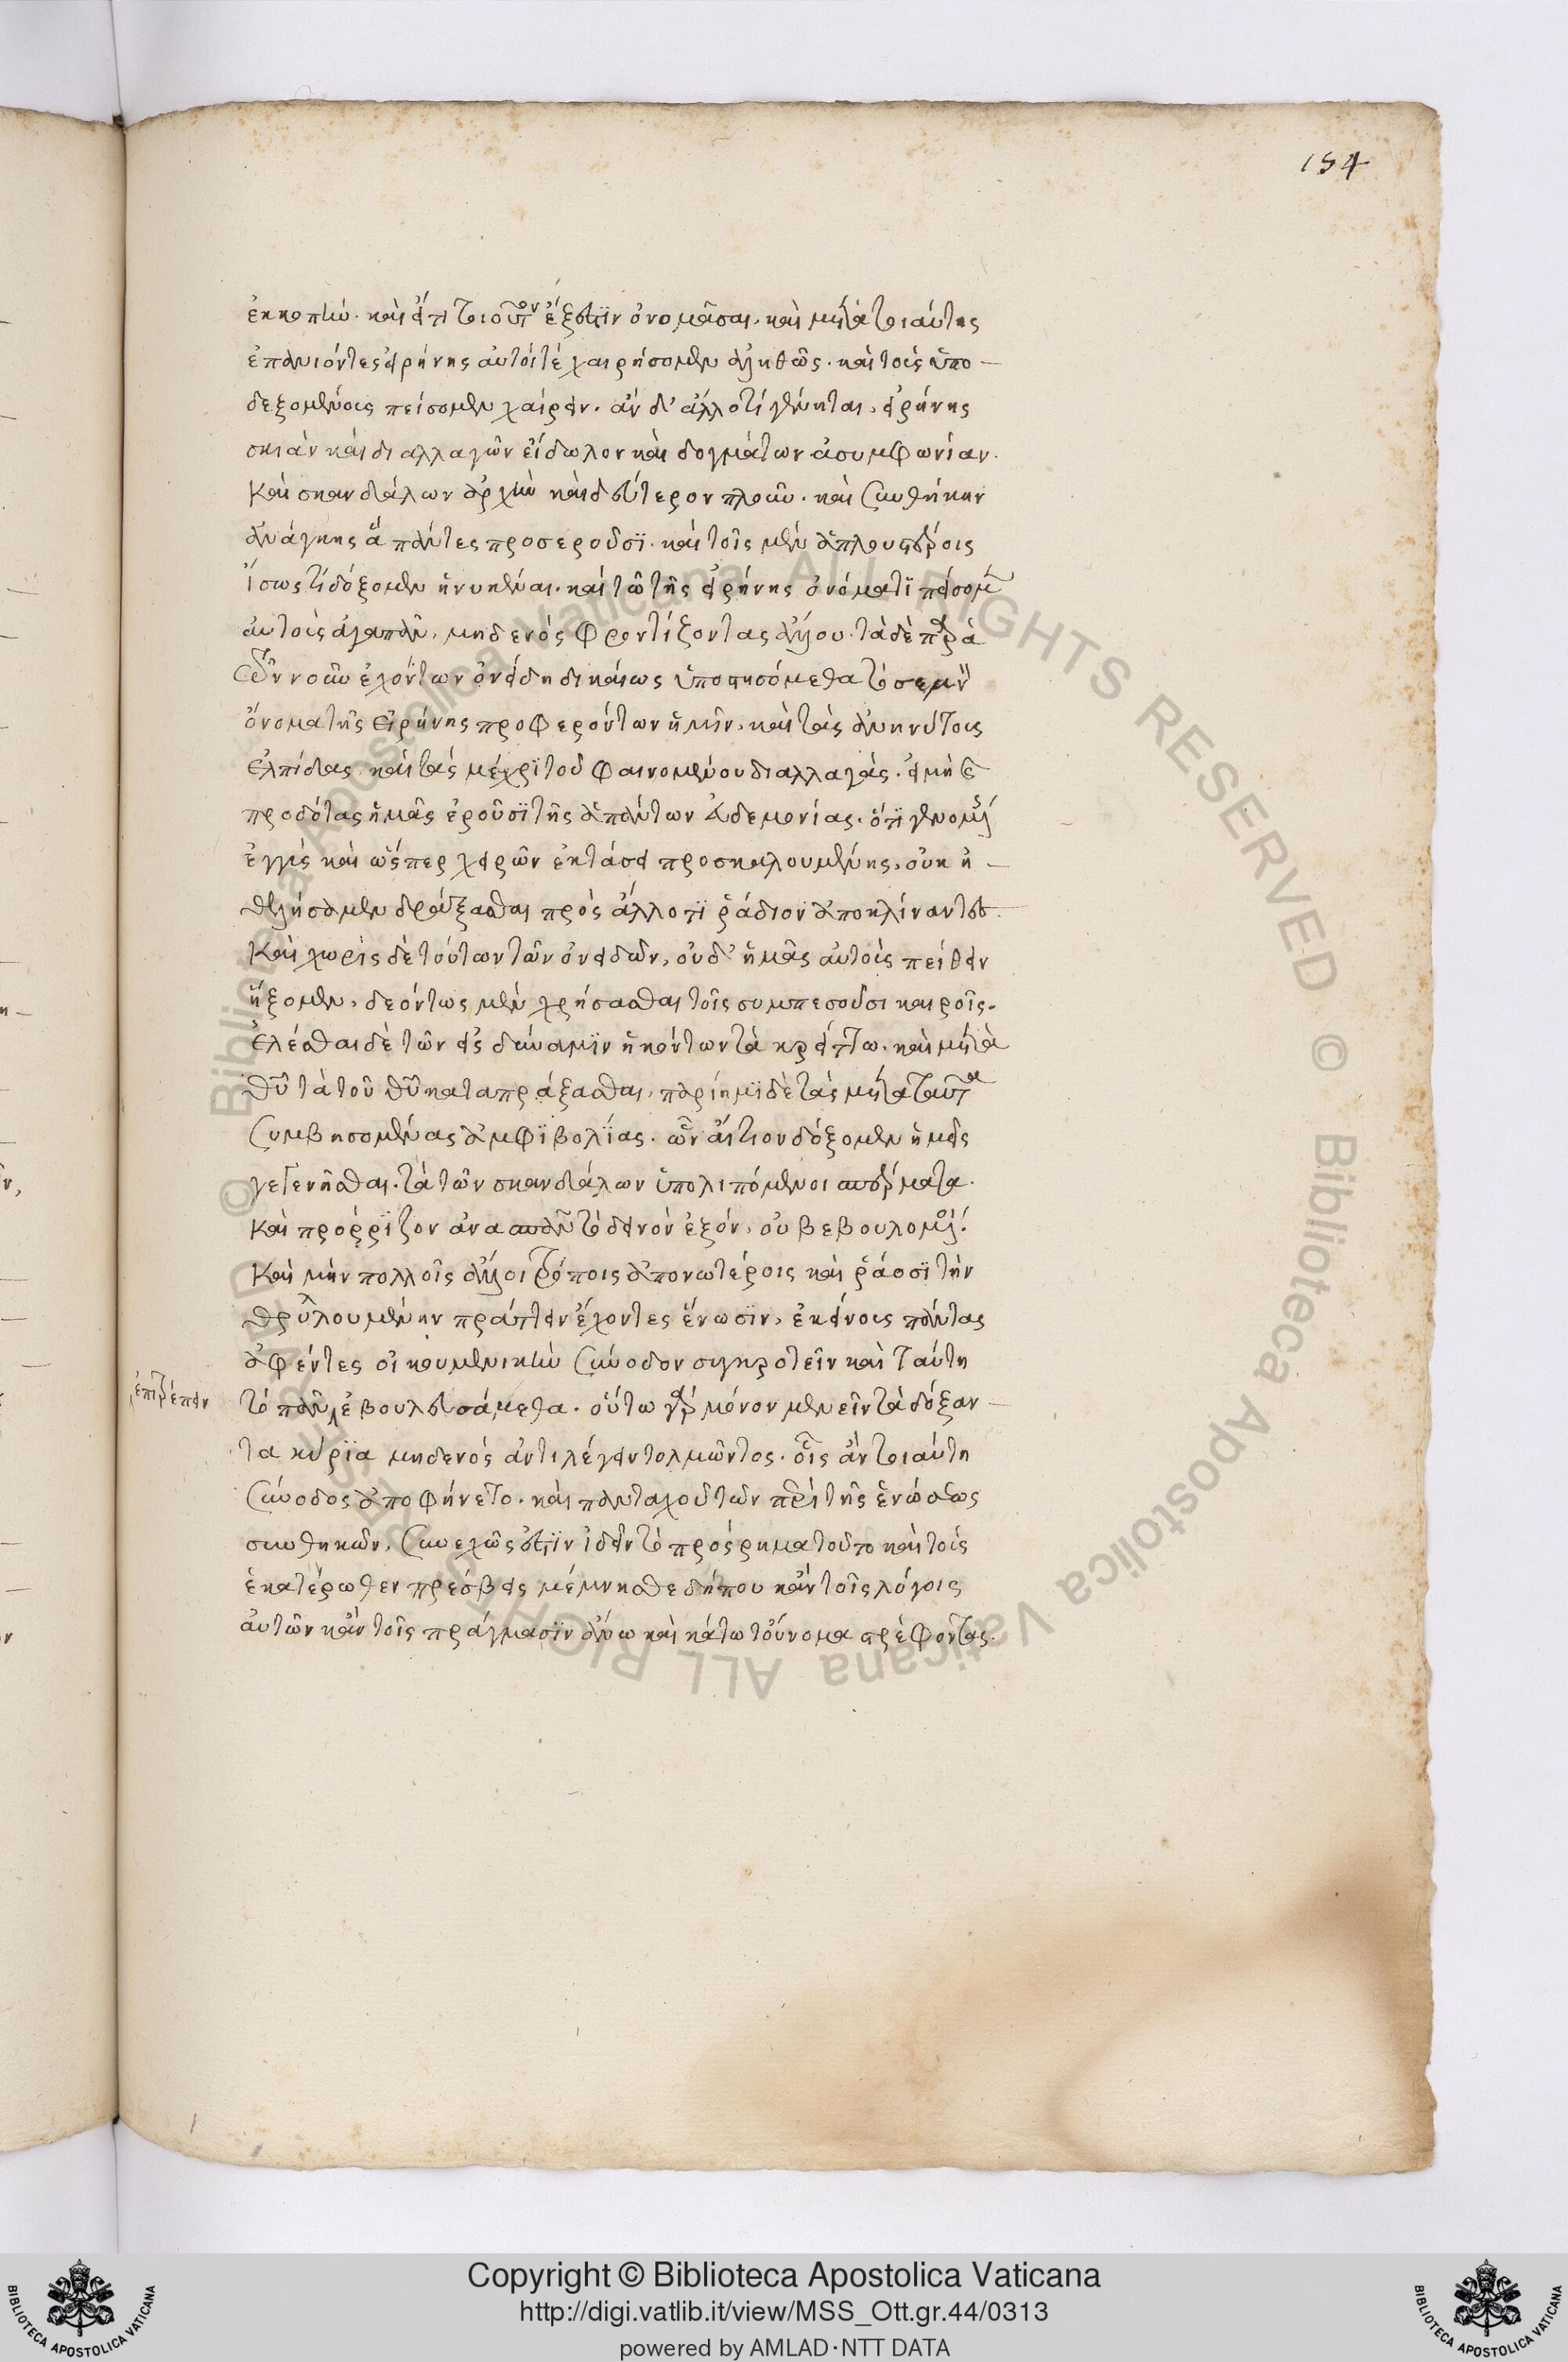 154
ἐκκοπὴν. καὶ εἴ τι τοιοῦτον ἔξεστιν ὀνομᾶσαι. καὶ μετὰ τοιαύτης
ἐπανιόντες εἰρήνης αὐτοί τὲ χαιρήσομεν ἀληθῶς. καὶ τοὺς ὑπο
δεξομένους πείσομεν χαίρειν. ἂν δ' ἄλλό τι γένηται, εἰρήνης
σκιὰν καὶ διαλλαγῶν εἴδωλον καὶ δογμάτων ἀσυμφωνίαν.
καὶ σκανδάλων ἀρχὴν καὶ δεύτερον πλοῦν. καὶ συνθήκην
ἀνάγκης ἅπαντες προσεροῦσι. καὶ τοῖς μὲν ἁπλουστέροις
ἴσως τὶ δόξομεν ἠνυκέναι. καὶ τῶ τῆς εἰρήνης ὀνόματι πείσομεν
αὐτοὺς ἀγαπᾶν, μηδενὸς φροντίζοντας ἄλλου. τὰ δὲ παρὰ
τῶν νοῦν ἐχόντων ὀνείδη δικαίως ὑποστησόμεθα τὸ σεμνὸν
ὄνομα τῆς εἰρήνης προφερόντων ἡμῖν, καὶ τὰς ἀνηνύτους
ἐλπίδας καὶ τὰς μέχρι τοῦ φαινομένου διαλλαγάς. εἰ μή τε
προδότας ἡμᾶς ἐροῦσι τῆς ἁπάντων εὐδαιμονίας. ὅτι γενομένης
ἐγγὺς καὶ ὥσπερ χειρῶν ἐκτάσει προσκαλουμένης, οὐκ ἠ
θελήσαμεν δράξασθαι πρὸς ἄλλό τι ῥάδιον ἀποκλίναντες.
καὶ χωρὶς δὲ τούτων τῶν ὀνειδῶν, οὐδ' ἡμᾶς αὐτοὺς πείθειν
ἥξομεν, δεόντως μὲν χρήσασθαι τοῖς συμπεσοῦσι καιροῖς.
ἑλέσθαι δὲ τῶν εἰς δύναμιν ἡκόντων τὰ κρείττω. καὶ μετὰ
θεοῦ τὰ τοῦ θεοῦ καταπράξασθαι, παρίημι δὲ τὰς μετὰ ταῦτα
συμβησομένας ἀμφιβολίας. ὧν αἴτιον δόξομεν ἡμεῖς
γεγενῆσθαι. τὰ τῶν σκανδάλων ὑπολιπόμενοι σπέρματα.
καὶ πρόρριζον ἀνασπᾶν τὸ δεινὸν ἐξὸν, οὐ βεβουλομένοι.
καὶ μὴν πολλοῖς ἄλλοις τρόποις ἀπονωτέροις καὶ ῥάοσι τὴν
θρυλλουμένην πράττειν ἔχοντες ἕνωσιν, ἐκείνους πάντας
ἀφέντες οἰκουμενικὴν σύνοδον συγκροτεῖν καὶ ταύτη
ἐπιτρέπειν
τὸ πᾶν ἐβουλευσάμεθα. οὕτω γὰρ μόνον μένειν τὰ δόξαν
τα κύρια μηδενὸς ἀντιλέγειν τολμῶντος. οἷς ἂν τοιαύτη
σύνοδος ἀποφήνετο. καὶ πανταχοῦ τῶν περὶ τῆς ἑνώσεως
συνθηκῶν, συνεχῶς ἔστιν ἰδεῖν τὸ πρόσρημα τοῦτο καὶ τοὺς
ἑκατέρωθεν πρέσβεις μέμνησθε δήπου κἂν τοῖς λόγοις
αὐτῶν κἂν τοῖς πράγμασιν ἄνω καὶ κάτω τοὔνομα στρέφοντας.
Copyright © Biblioteca Apostolica Vaticana
http://digi.vatlib.it/view/MSS_Ott.gr.44/0313
powered by AMLAD·NTT DATA